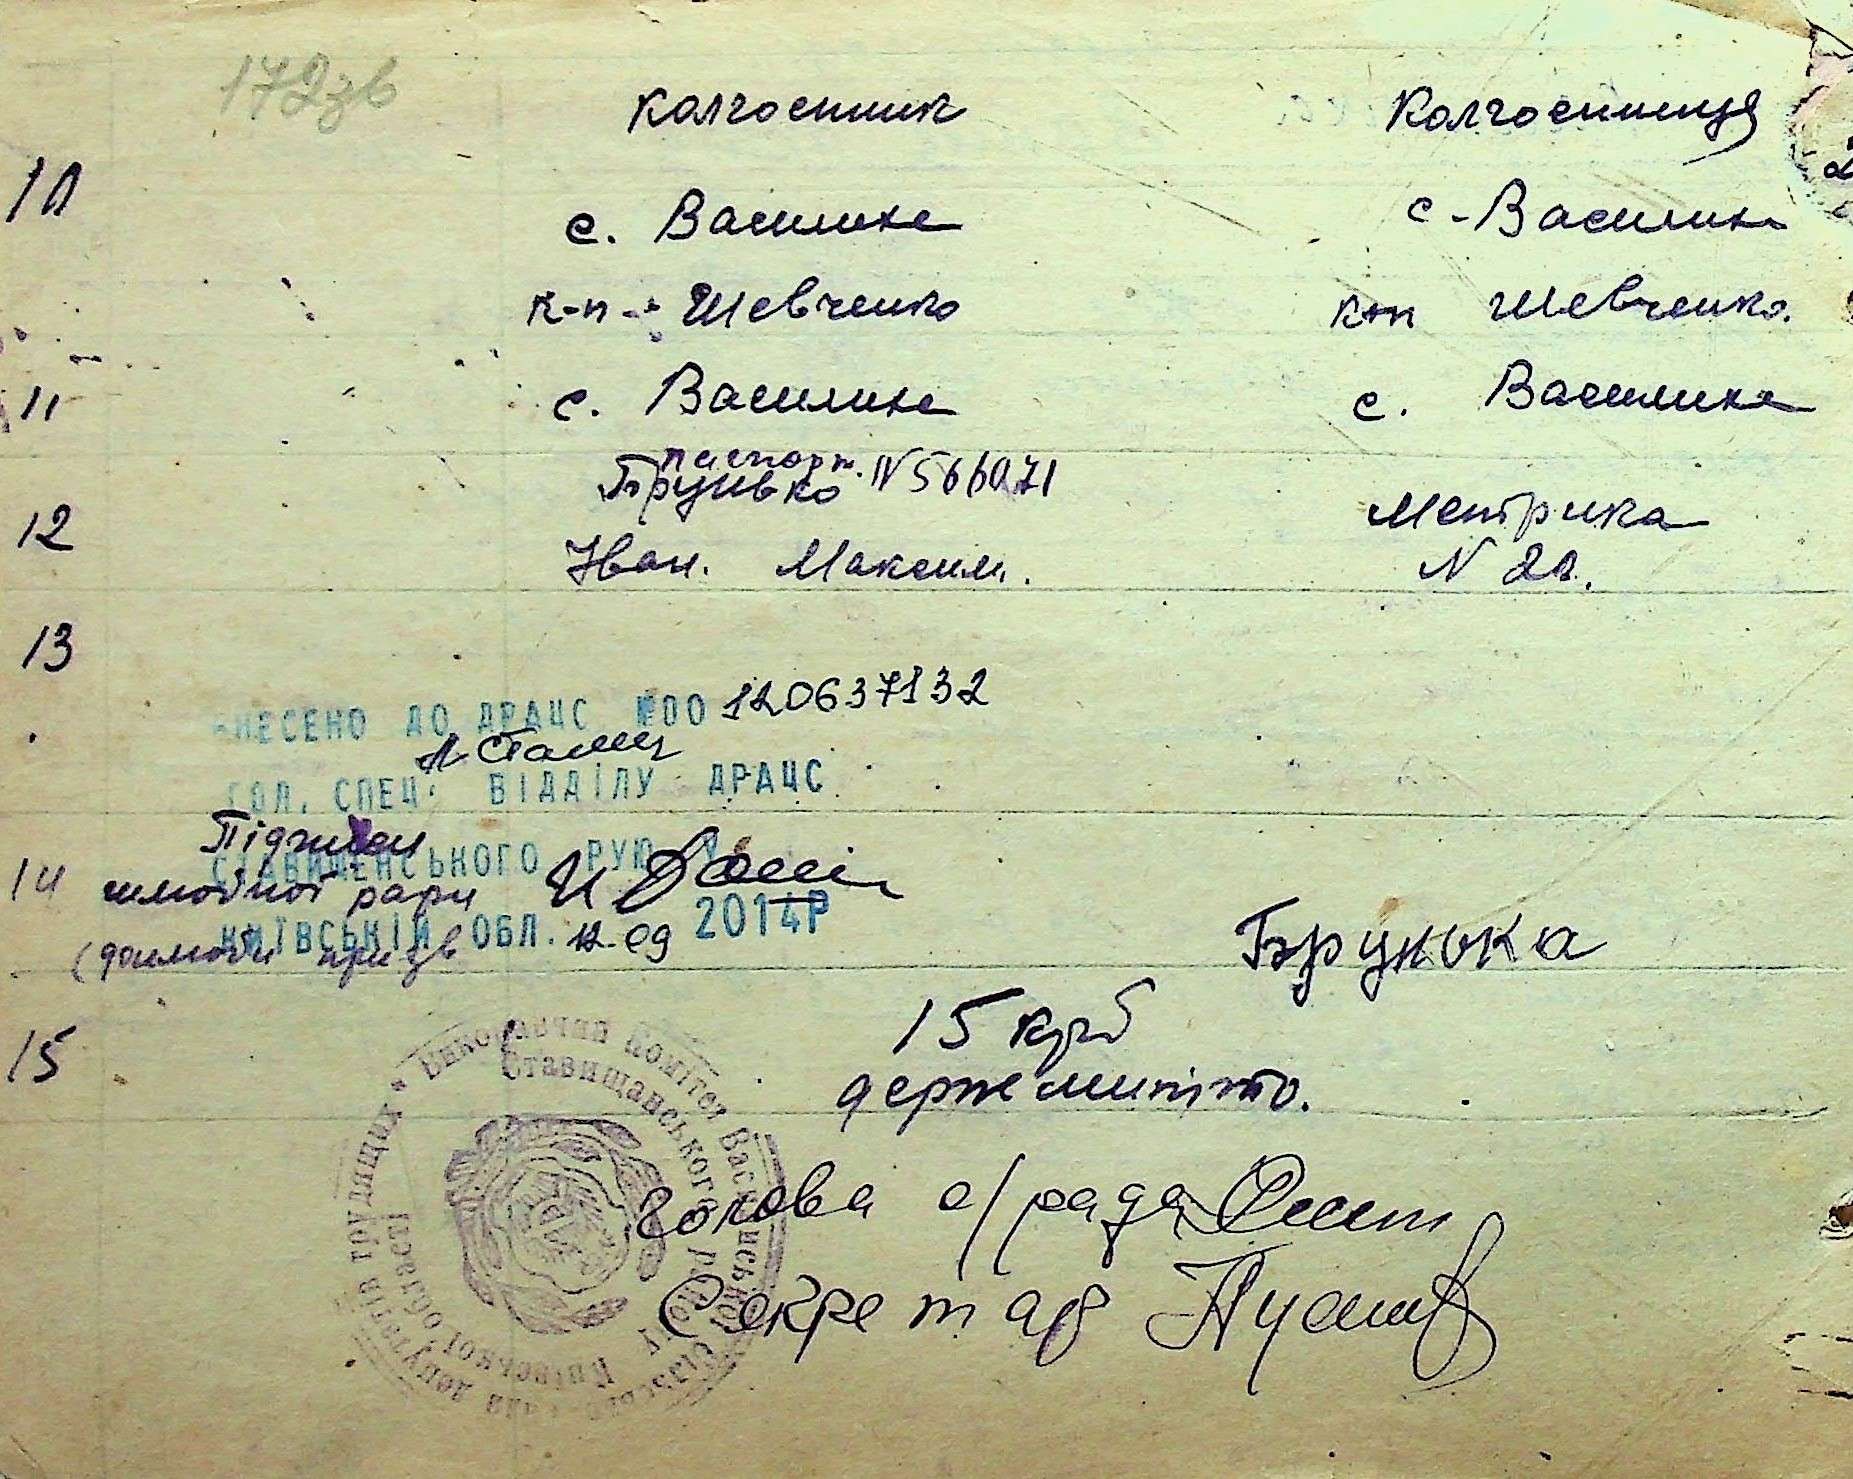 172зв
колгоспник колгоспниця
10
с. Василиха с. Василиха
к-п Шевченко к-п Шевченко.
11 с. Василиха с. Василиха
паспорт. N 566071
12 Брунько Метрика
Іван. Максим. N 20.
13
ВНЕСЕНО ДО ДРАЦС №00 120637132
ГОЛ. СПЕЦ. ВІДДІЛУ ДРАЦС
Підписи
СТАВИЩЕНСЬКОГО РУЮ У
14 шлюбної пари
КИЇВСЬКІЙ ОБЛ. 12.09 2014Р
Брунька
15 15 крб
держмито.
Виконавчий Комітет Василиської Сільської Ради депутатів трудящих *
Ставищанського району Київської області
голова с/ради
Секретар